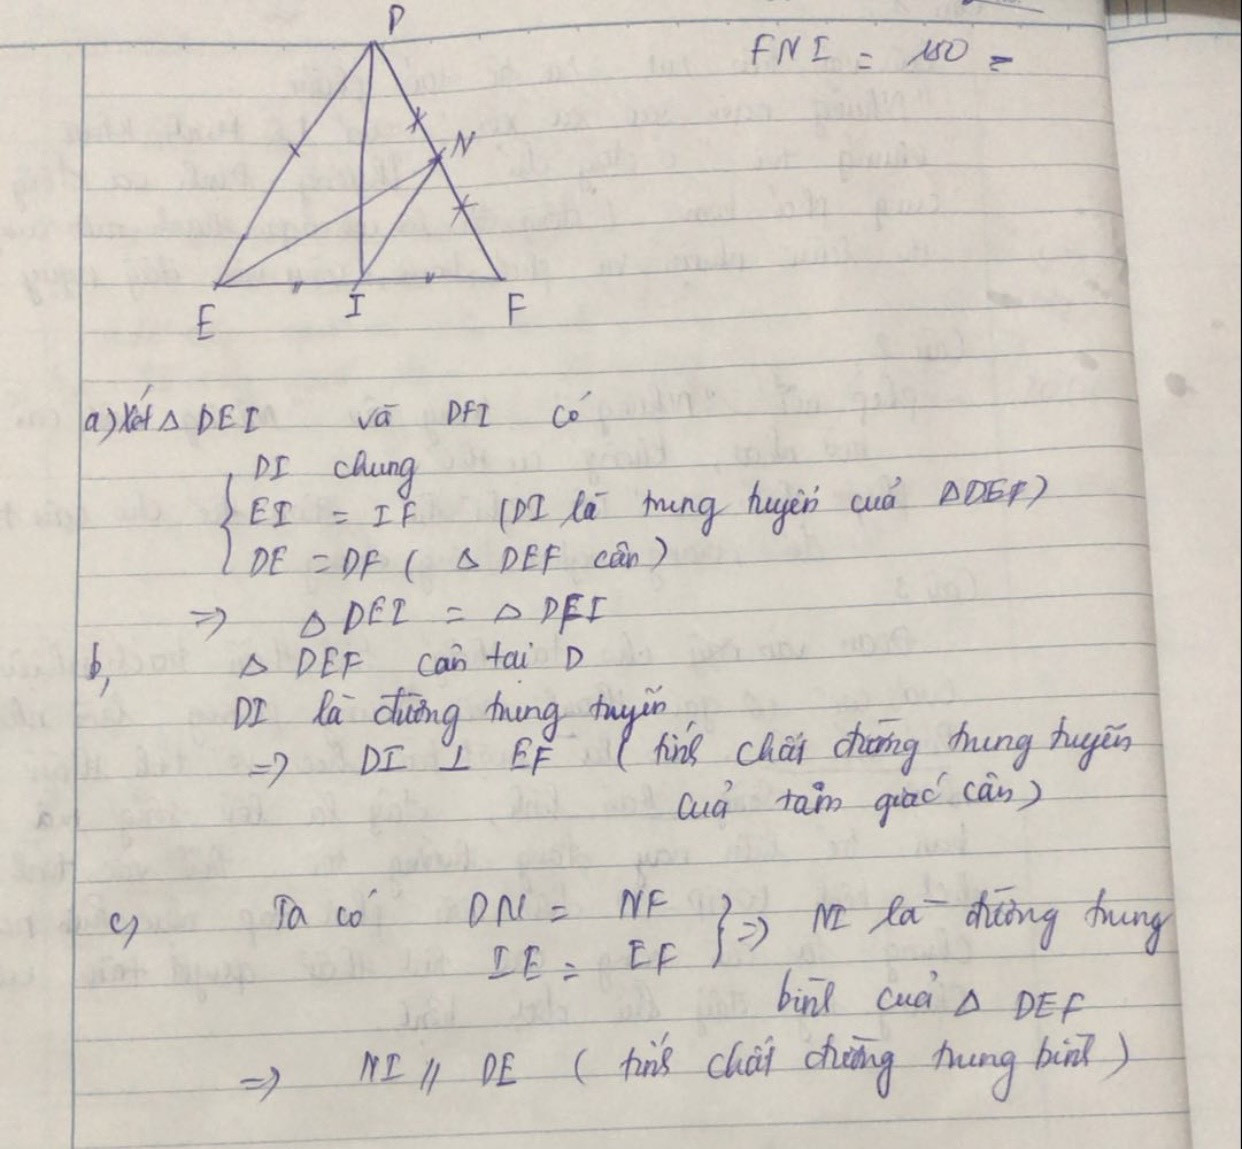 FNI = 180 =
D
N
E
I
F
a) Xét △ DEI và DFI có
DI chung
EI = IF (DI là trung tuyến cuả △DEF)
DE = DF ( △ DEF cân)
=> △ DEI = △ DFI
b, △ DEF cân tại D
DI là đường trung tuyến
=> DI ⊥ EF ( tính chất đường trung tuyến
cuả tam giác cân)
c) Ta có DN = NF } => NI là đường trung
IE = IF
bình cuả △ DEF
=> NI // DE ( tính chất đường trung bình )